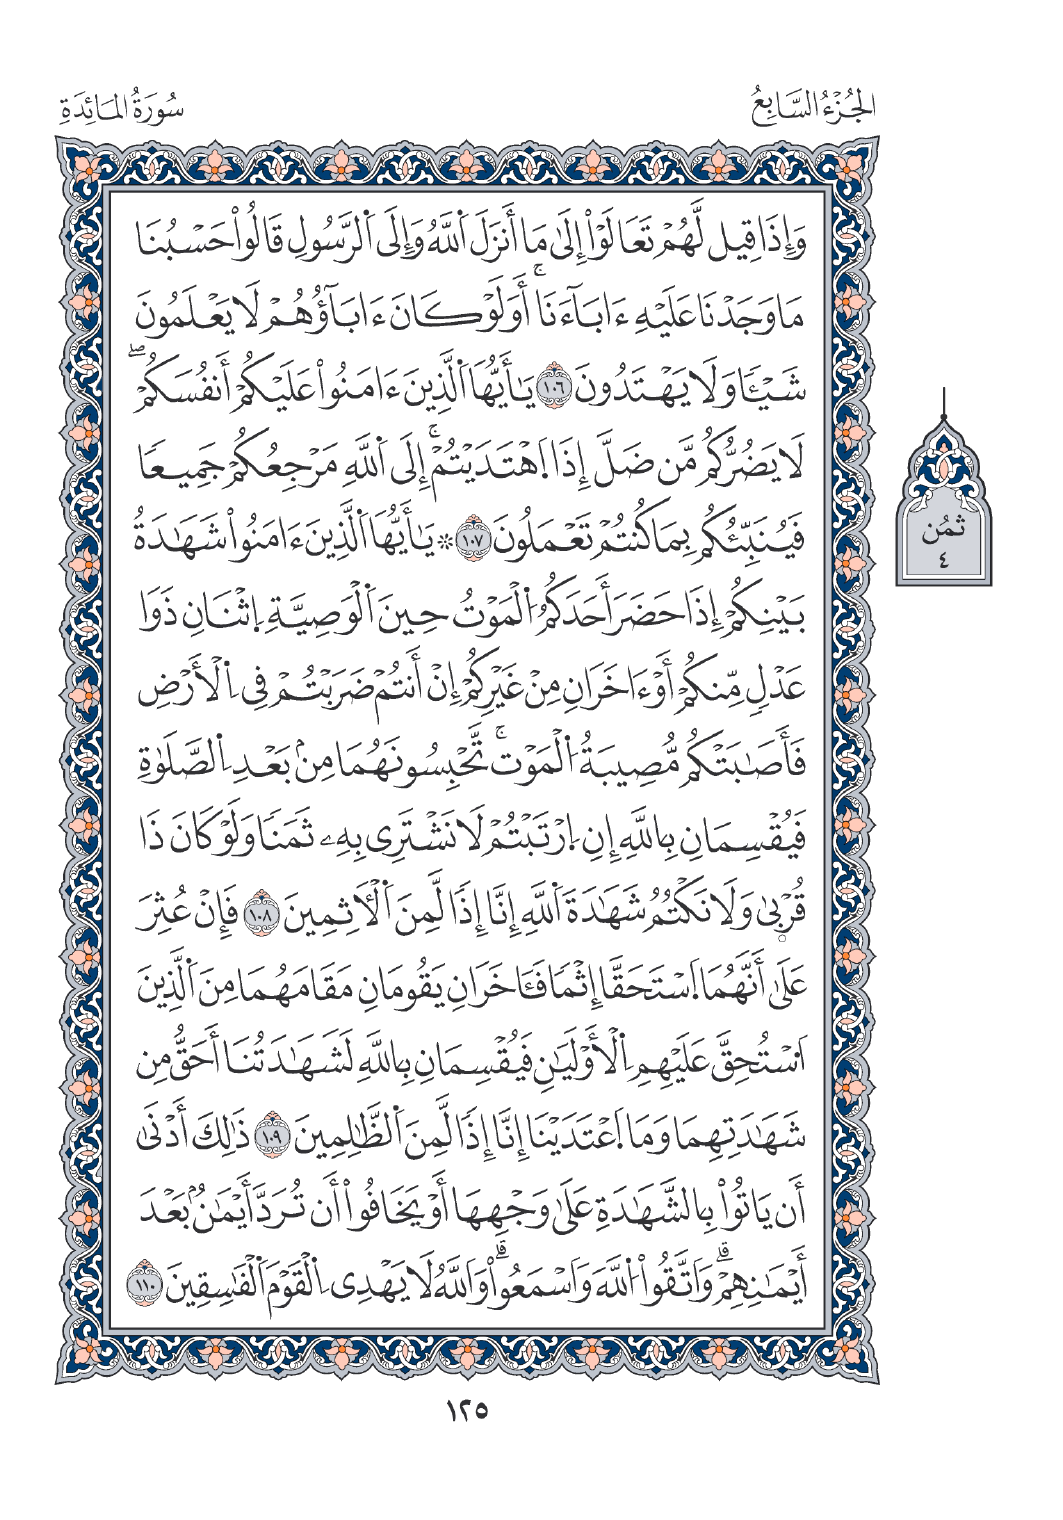 الجُزْءُ السَّابِعُ
سُورَةُ المَائِدَةِ
وَإِذَا قِيل لَّهُمْ تَعَالَوْاْ إِلَىٰ مَا أَنزَلَ اَ۬للَّهُ وَإِلَى اَ۬لرَّسُولِ قَالُواْ حَسْبُنَا
مَا وَجَدْنَا عَلَيْهِ ءَابَآءَنَاۚ أَوَلَوْ كَانَ ءَابَآؤُهُمْ لَا يَعْلَمُونَ
شَيْـًٔا وَلَا يَهْتَدُونَ ١٠٦ يَٰأَيُّهَا اَ۬لَّذِينَ ءَامَنُواْ عَلَيْكُمْ أَنفُسَكُمْۖ
لَا يَضُرُّكُم مَّن ضَلَّ إِذَا اَ۪هْتَدَيْتُمْۚ إِلَى اَ۬للَّهِ مَرْجِعُكُمْ جَمِيعًا
فَيُنَبِّئُكُم بِمَا كُنتُمْ تَعْمَلُونَ ١٠٧ ۞ يَٰأَيُّهَا اَ۬لَّذِينَ ءَامَنُواْ شَهَٰدَةُ
بَيْنِكُمْ إِذَا حَضَرَ أَحَدَكُمُ اُ۬لْمَوْتُ حِينَ اَ۬لْوَصِيَّةِ اِ۪ثْنَانِ ذَوَا
عَدْلٍ مِّنكُمْ أَوْ ءَاخَرَانِ مِنْ غَيْرِكُمْ إِنْ أَنتُمْ ضَرَبْتُمْ فِى اِ۬لْأَرْضِ
فَأَصَٰبَتْكُم مُّصِيبَةُ اُ۬لْمَوْتۚ تَّحْبِسُونَهُمَا مِنۢ بَعْدِ اِ۬لصَّلَوٰةِ
فَيُقْسِمَانِ بِاللَّهِ إِنِ اِ۪رْتَبْتُمْ لَا نَشْتَرِى بِهِۦ ثَمَنًا وَلَوْ كَانَ ذَا
قُرْبىٰ وَلَا نَكْتُمُ شَهَٰدَةَ اَ۬للَّهِ إِنَّا إِذًا لَّمِنَ اَ۬لْأٓثِمِينَ ١٠٨ فَإِنْ عُثِرَ
عَلَىٰ أَنَّهُمَا اَ۪سْتَحَقَّا إِثْمًا فَـَٔاخَرَانِ يَقُومَانِ مَقَامَهُمَا مِنَ اَ۬لَّذِينَ
اَ۟سْتُحِقَّ عَلَيْهِمِ اِ۬لْأَوْلَيَٰنِ فَيُقْسِمَانِ بِاللَّهِ لَشَهَٰدَتُنَا أَحَقُّ مِن
شَهَٰدَتِهِمَا وَمَا اَ۪عْتَدَيْنَا إِنَّا إِذًا لَّمِنَ اَ۬لظَّٰلِمِينَ ١٠٩ ذَٰلِكَ أَدْنَىٰ
أَن يَاتُواْ بِالشَّهَٰدَةِ عَلَىٰ وَجْهِهَا أَوْ يَخَافُواْ أَن تُرَدَّ أَيْمَٰنُۢ بَعْدَ
أَيْمَٰنِهِمْۗ وَاتَّقُواْ اُ۬للَّهَ وَاسْمَعُواْۗ وَاللَّهُ لَا يَهْدِى اِ۬لْقَوْمَ اَ۬لْفَٰسِقِينَ ١١٠
ثُمُن
٤
١٢٥